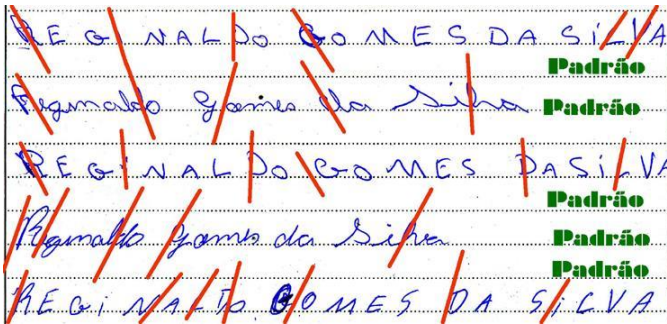 REGINALDO GOMES DA SILVA
Padrão
Reginaldo Gomes da Silva Padrão
REGINALDO GOMES DASiLVA
Padrão
Reginaldo Gomes da Silva Padrão
Padrão
REGiNALDO GOMES DA SiLVA